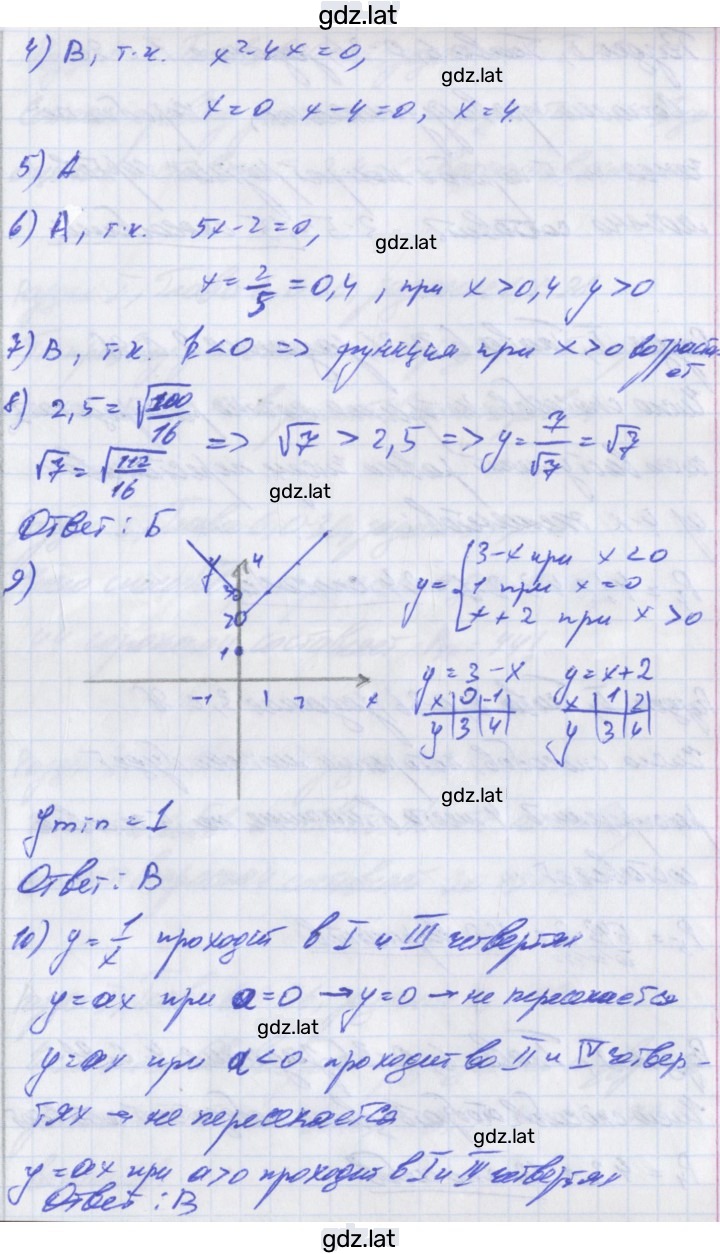 gdz.lat
4) В, т.к. x²-4x=0,
gdz.lat
x=0 x-4=0, x=4.
5) А
6) А, т.к. 5x-2=0,
gdz.lat
x=2/5=0,4, при x>0,4 y>0
7) В, т.к. k<0 => функция при x>0 возрастает
8) 2,5=√100/16
√7=√112/16 => √7>2,5 => y=7/√7=√7
gdz.lat
Ответ: Б
9)
y 4
3
2
1
-1 1 2 x
y={3-x при x<0
1 при x=0
x+2 при x>0
y=3-x y=x+2
x|0|-1| x|1|2|
y|3|4| y|3|4|
gdz.lat
ymin=1
Ответ: В
10) y=1/x проходит в I и III четвертях
y=ax при a=0 →y=0 → не пересекается
gdz.lat
y=ax при a<0 проходит во II и IV четвер-
тях → не пересекается
gdz.lat
y=ax при a>0 проходит в I и III четвертях
Ответ: В
gdz.lat